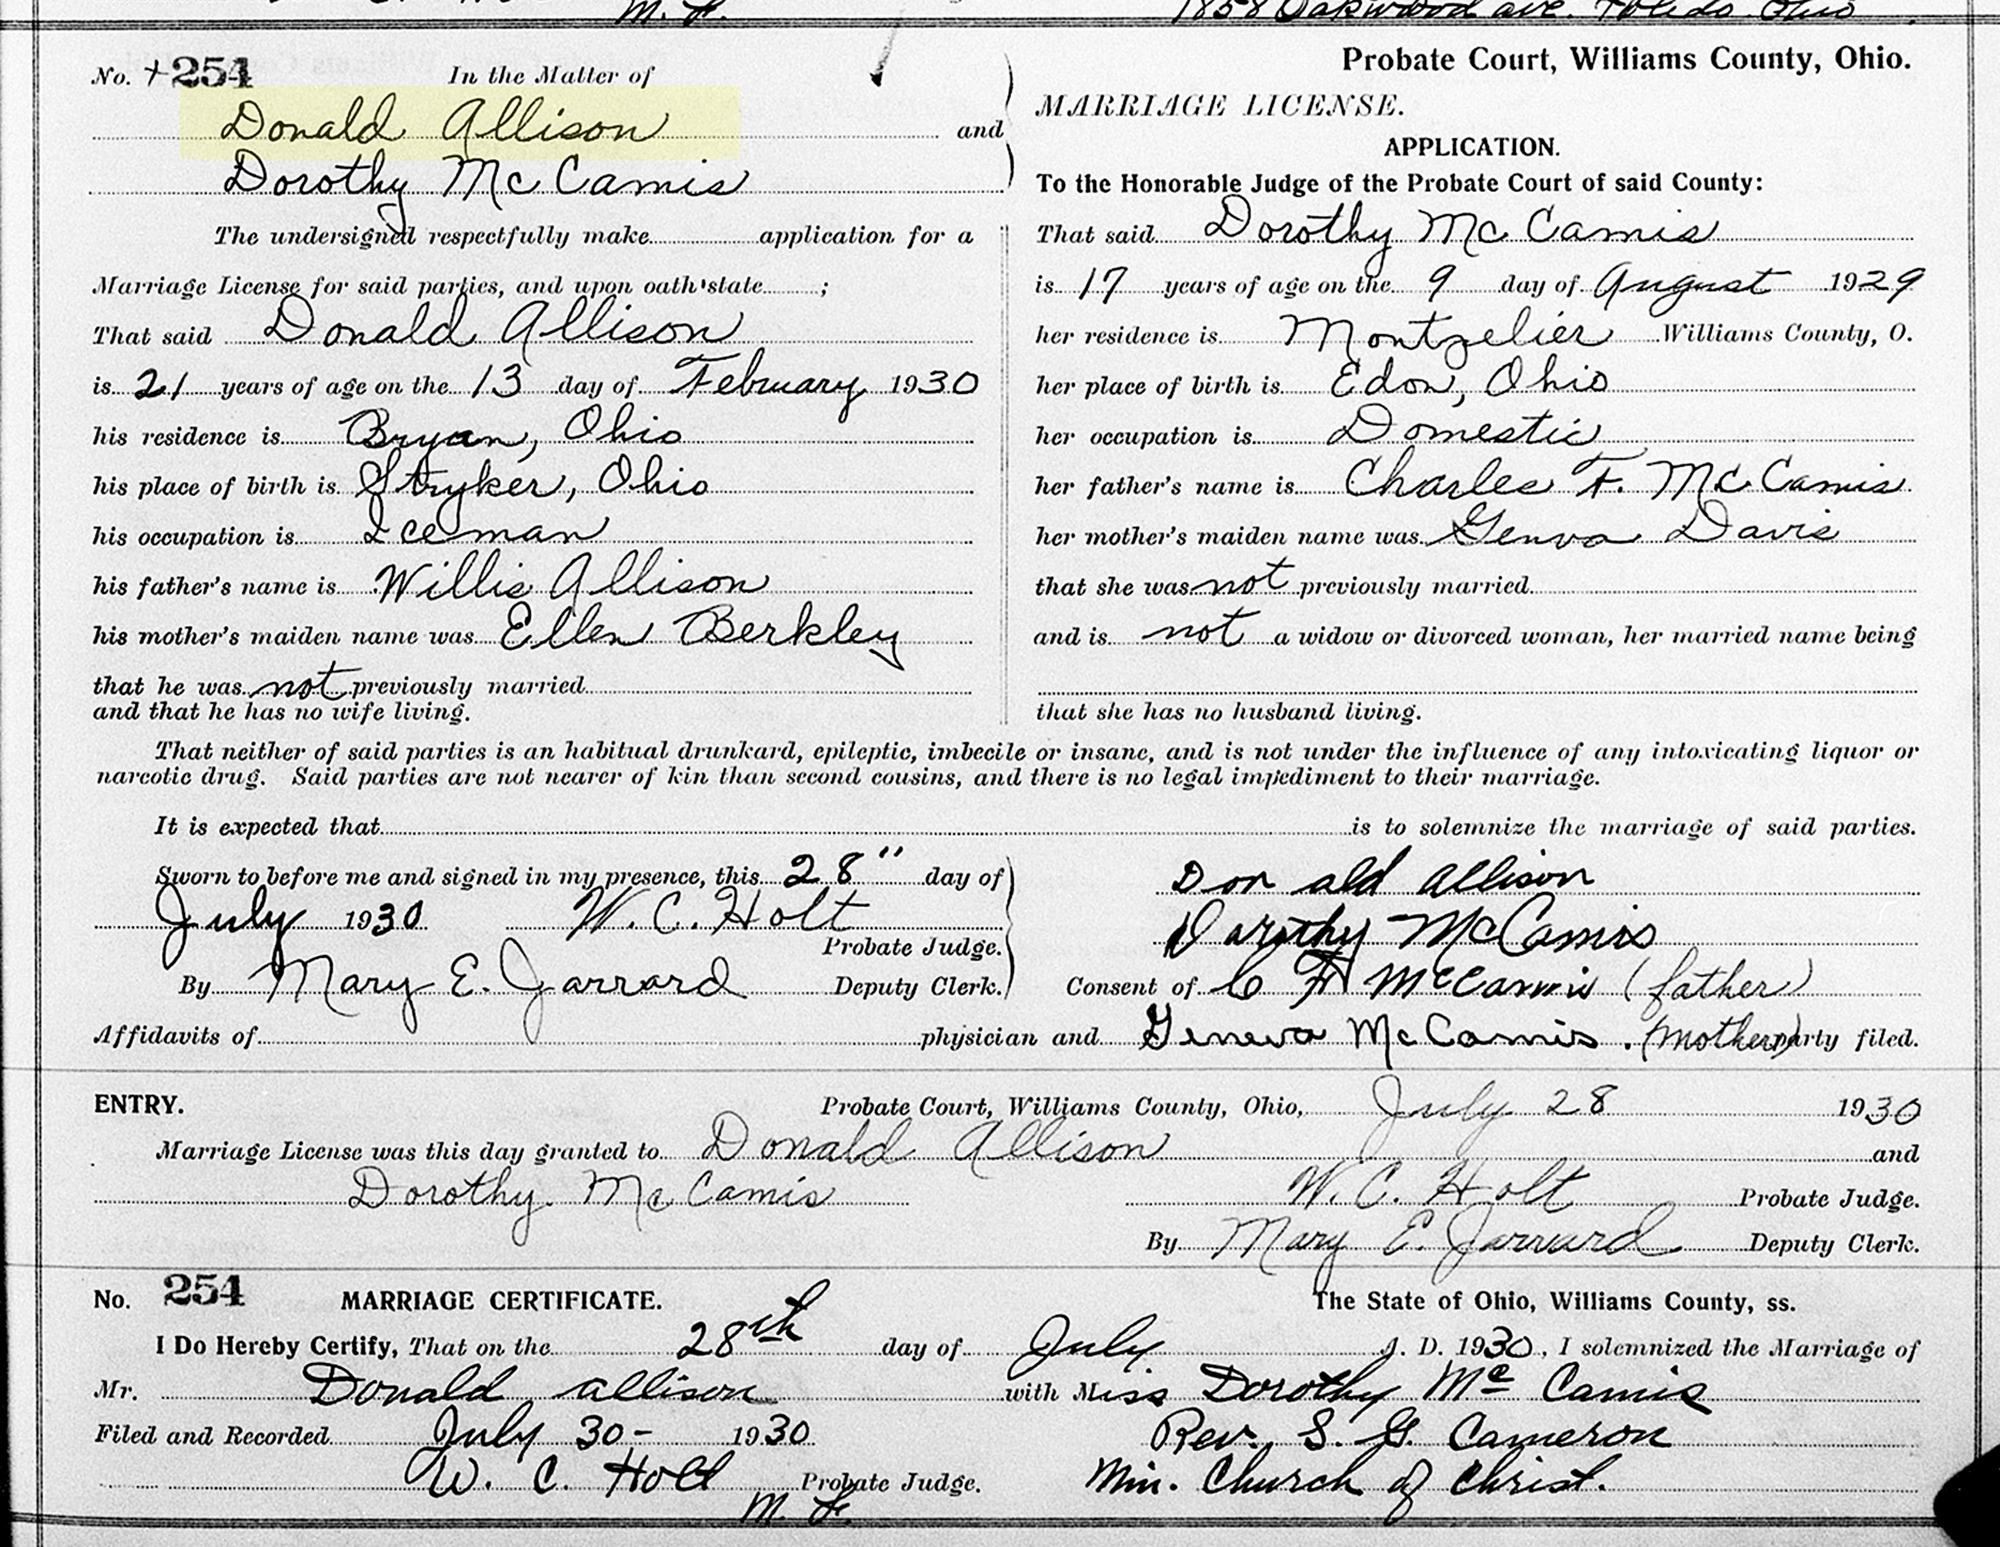 M. F.
1858 Oakwood ave. Toledo Ohio
No. 254 In the Matter of
Donald Allison and
Dorothy McCamis
The undersigned respectfully make application for a
Marriage License for said parties, and upon oath state ;
That said Donald Allison
is 21 years of age on the 13 day of February 1930
his residence is Bryan, Ohio
his place of birth is Stryker, Ohio
his occupation is Iceman
his father's name is Willis Allison
his mother's maiden name was Ellen Berkley
that he was not previously married
and that he has no wife living.
Probate Court, Williams County, Ohio.
MARRIAGE LICENSE.
APPLICATION.
To the Honorable Judge of the Probate Court of said County:
That said Dorothy McCamis
is 17 years of age on the 9 day of August 1929
her residence is Montpelier Williams County, O.
her place of birth is Edon, Ohio
her occupation is Domestic
her father's name is Charles F. McCamis
her mother's maiden name was Genva Davis
that she was not previously married
and is not a widow or divorced woman, her married name being
that she has no husband living.
That neither of said parties is an habitual drunkard, epileptic, imbecile or insane, and is not under the influence of any intoxicating liquor or
narcotic drug. Said parties are not nearer of kin than second cousins, and there is no legal impediment to their marriage.
It is expected that is to solemnize the marriage of said parties.
Sworn to before me and signed in my presence, this 28" day of
July 1930 W. C. Holt
Probate Judge.
By Mary E. Jarrard Deputy Clerk.
Donald Allison
Dorothy McCamis
Consent of C F McCamis (father)
Affidavits of physician and Geneva McCamis. (mother) party filed.
ENTRY. Probate Court, Williams County, Ohio, July 28 1930
Marriage License was this day granted to Donald Allison and
Dorothy McCamis W. C. Holt Probate Judge.
By Mary E. Jarrard Deputy Clerk.
No. 254 MARRIAGE CERTIFICATE. The State of Ohio, Williams County, ss.
I Do Hereby Certify, That on the 28th day of July A. D. 1930, I solemnized the Marriage of
Mr. Donald Allison with Miss Dorothy Mc Camis
Filed and Recorded July 30- 1930 Rev. S. G. Cameron
W. C. Holt Probate Judge. Min. Church of Christ.
M. F.